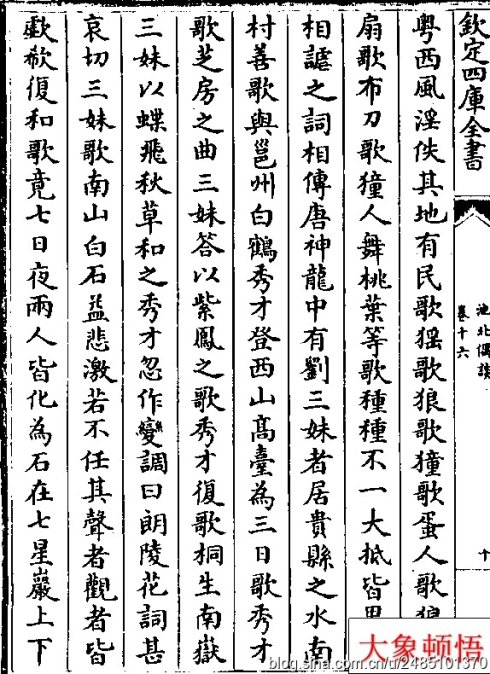 欽定四庫全書
池北偶談
卷十六
十
粵西風淫佚其地有民歌猺歌狼歌獞歌蛋人歌狼
扇歌布刀歌獞人舞桃葉等歌種種不一大抵皆男
相謔之詞相傳唐神龍中有劉三妹者居貴縣之水南
村善歌與邕州白鶴秀才登西山高臺為三日歌秀才
歌芝房之曲三妹答以紫鳳之歌秀才復歌桐生南嶽
三妹以蝶飛秋草和之秀才忽作變調曰朗陵花詞甚
哀切三妹歌南山白石益悲激若不任其聲者觀者皆
歔欷復和歌竟七日夜兩人皆化為石在七星巖上下
大象顿悟
blog.sina.com.cn/u/2485101370